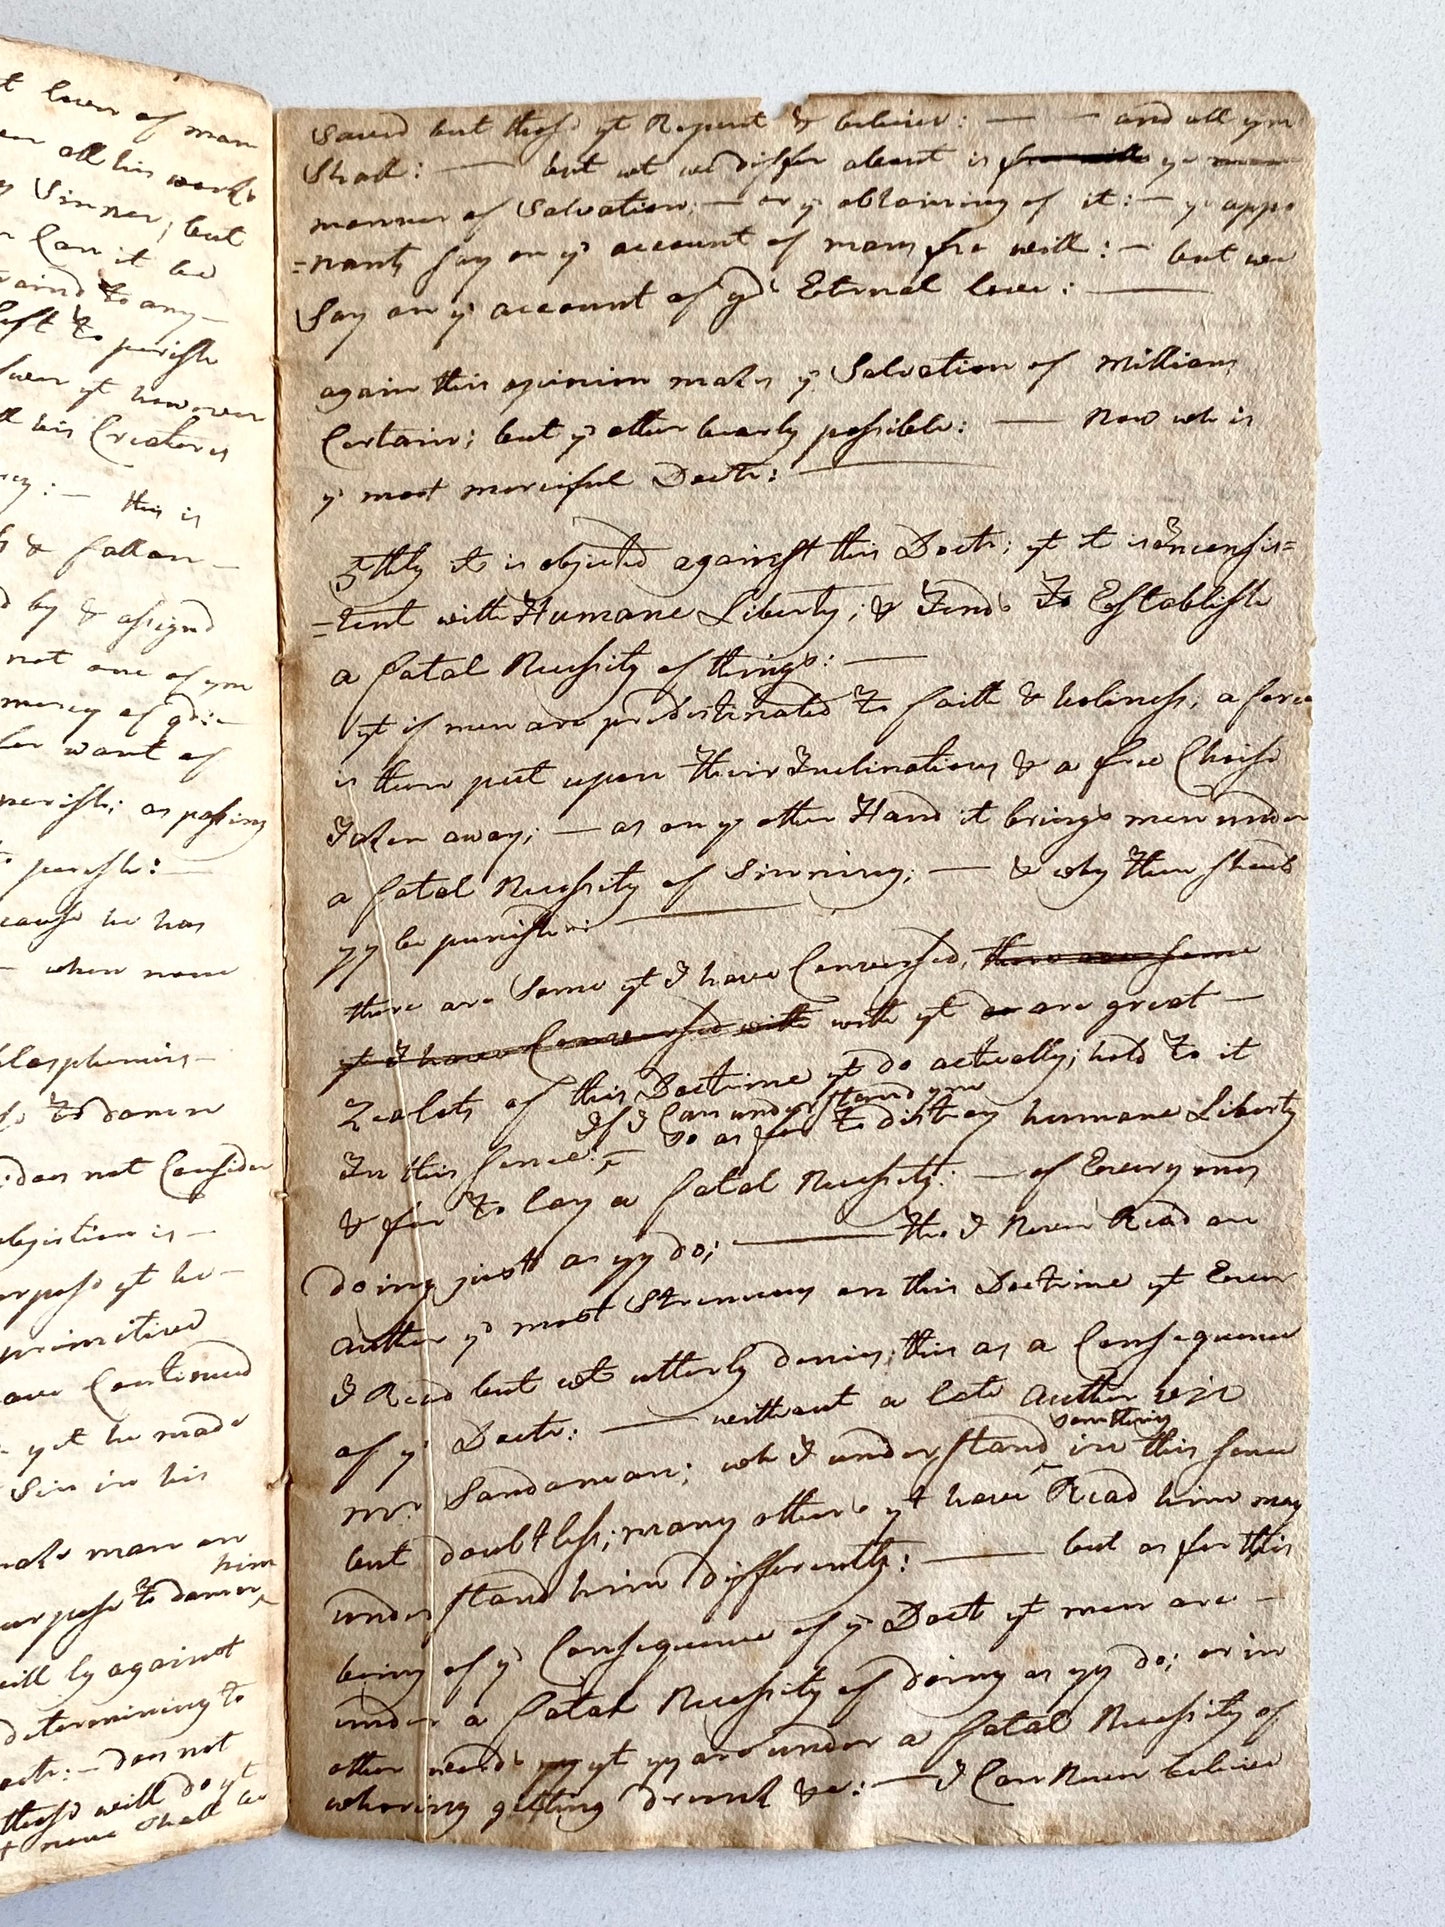 t lover of man
all his works
Sinner; but
Can it be
to any —
left to perish
yt however
his Creatores
:— this is
& fallen —
by & assignd
not one of ym
mercy of gd:—
for want of
perish; as passing
to perish: —
cause he has
— when none
blasphemies —
to damn
does not Consider
objection is —
purpose yt he —
primitive
have Continued
yet he made
Sin in his
make man on
him
purpose to damn
will ly against
determining to
— does not
those will do yt
none shall
Saved but those yt Repent & believe: — — and all ym
Shall: — but wt we differ about is free will ye mean
manner of Salvation; — or ye obtaining of it: — ye oppo
=nants say on ye account of mans fre will: — but we
Say on ye account of gds Eternal love: —
again this opinion makes ye Salvation of Millions
Certain; but ye other bearly possible: — Now wh is
ye most merciful Doctr: —
5thly it is objected against this Doctr; yt it is Inconsis=
=tent with Humane Liberty; & Tends To Establish
a fatal Necessity of things: —
yt if men are predestinated to faith & holiness, a force
is then put upon their Inclinations & a free Choise
Taken away; — as on ye other Hand it brings men under
a fatal Necessity of Sinning; — & why then should
yy be punished: —
there are Some yt I have Conversed, there are some
yt I have Conversed with with yt do are great —
Zealots of this Doctrine yt do actually; hold to it
If I Can understand ym
In this sence: — so as for to distroy humane Liberty
& for to lay a fatal Necessity: — of Every ones
doing just as yy do; — tho I Never Read an
auther ye most Strenuous on this Doctrine yt Ever
I Read but wt utterly denies; this as a Consequence
of ye Doctr: — without a late Auther viz
something
mr Sandaman; wh I understand in this sence
but doubtless; many others yt have Read him may
understand him differently: — but as for this
being of ye Consequence of ye Doct yt men are —
under a fatal Necessity of doing as yy do; or in
other words yy yt yy are under a fatal Necessity of
whoring getting drunk &c: — I Can Never believe